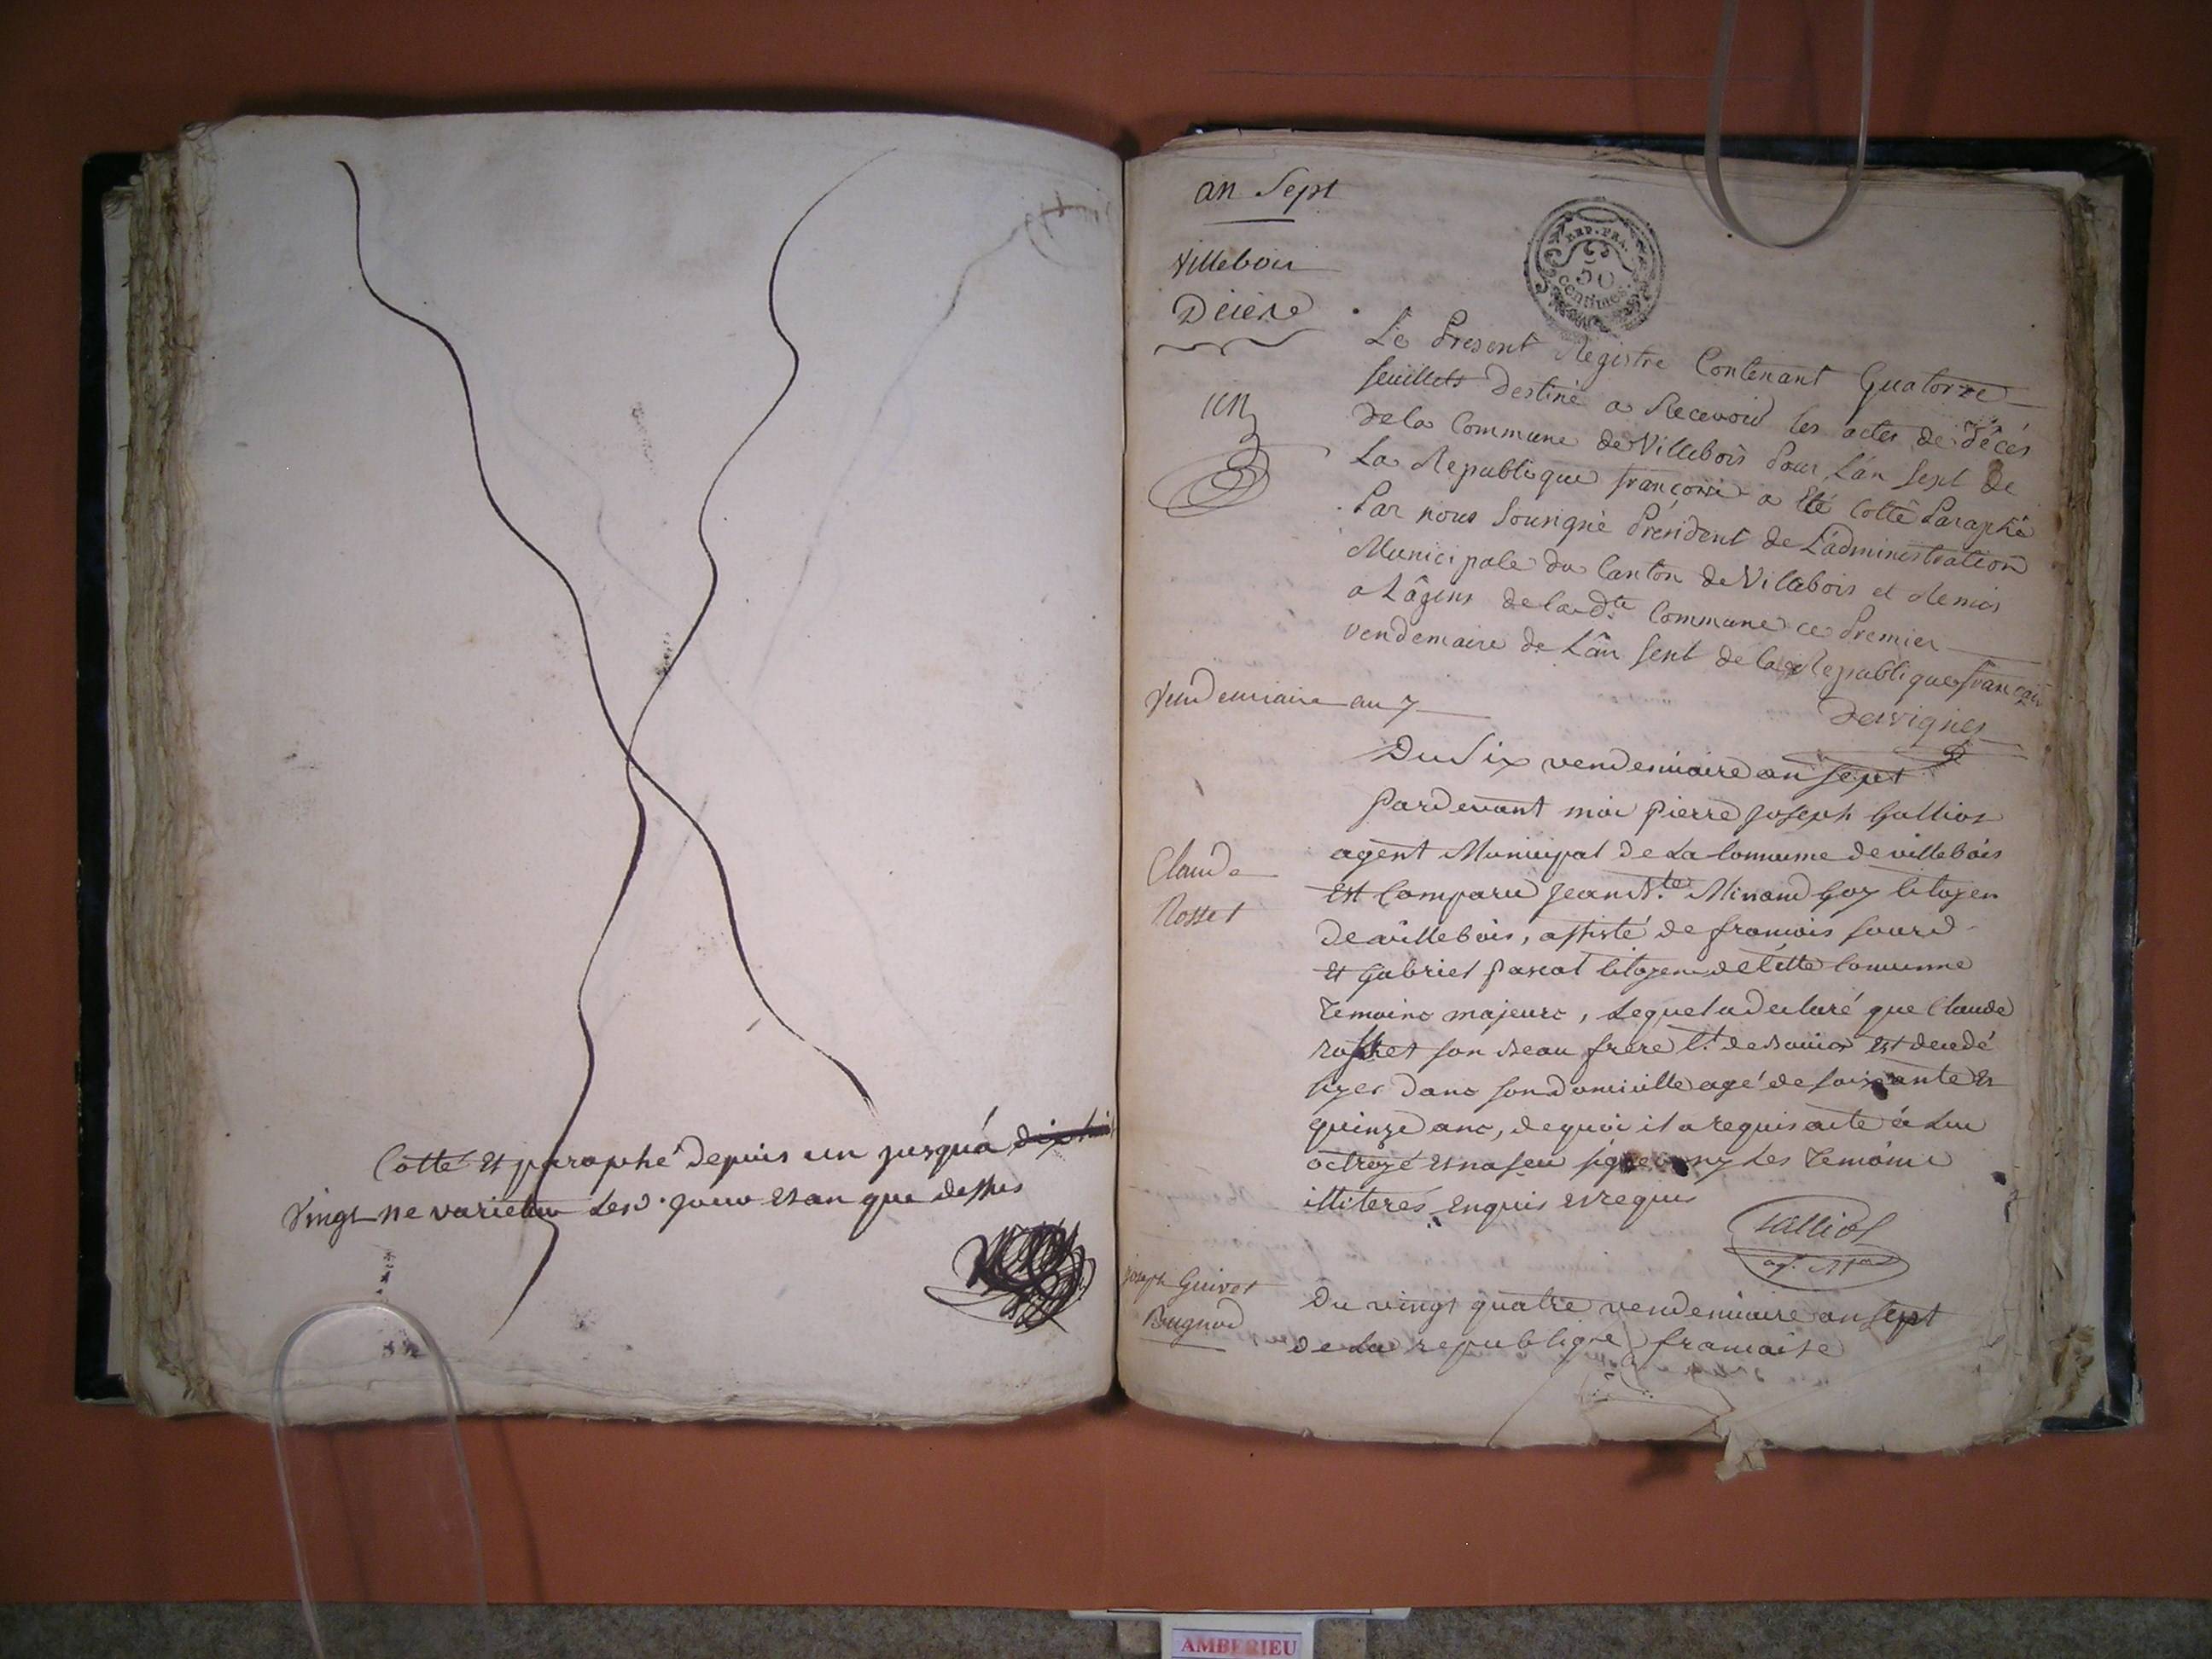 Cotté et paraphé depuis un jusqu'à
vingt ne varietur Lesd. jour et an que dessus
an Sept
Villebois
Décès
un
REP. FRA.
50
centimes
Le Present Registre Contenant Quatorze
feuillets Destiné a Recevoir les actes de décés
de la Commune de Villebois Pour L'an Sept de
La Republique françoise a Eté Cotté Paraphé
Par nous Sousigné Président de L'administration
Municipale du Canton de Villebois et Remis
a L'âgent de la dte Commune ce Premier
vendemaire de L'ân Sept de la Republique française
Desvignes
Vendemiaire an 7
Du Six vendemiaire an Sept
Pardevant moi pierre joseph Galliot
agent Municipal de La Commune de villebois
Claude
Rosset
Est Comparu jean Bte Minand Goy Citoyen
de villebois, assisté de francois sourd
Et Gabriel pascal Citoyens de Cette Commune
Temoins majeurs, Lequel a declaré que Claude
rosset son Beau frere Ct. de Bouis est decedé
hyer dans son domicille agé de soixante Et
quinze ans, de quoi il a requis acte à Lui
octroyé et na seu signer ny Les Temoins
illiterés enquis et requis
Galliot
ag. Mpal
joseph Guivet
Bugnod
Du vingt quatre vendemiaire an Sept
De La republique francaise
AMBERIEU